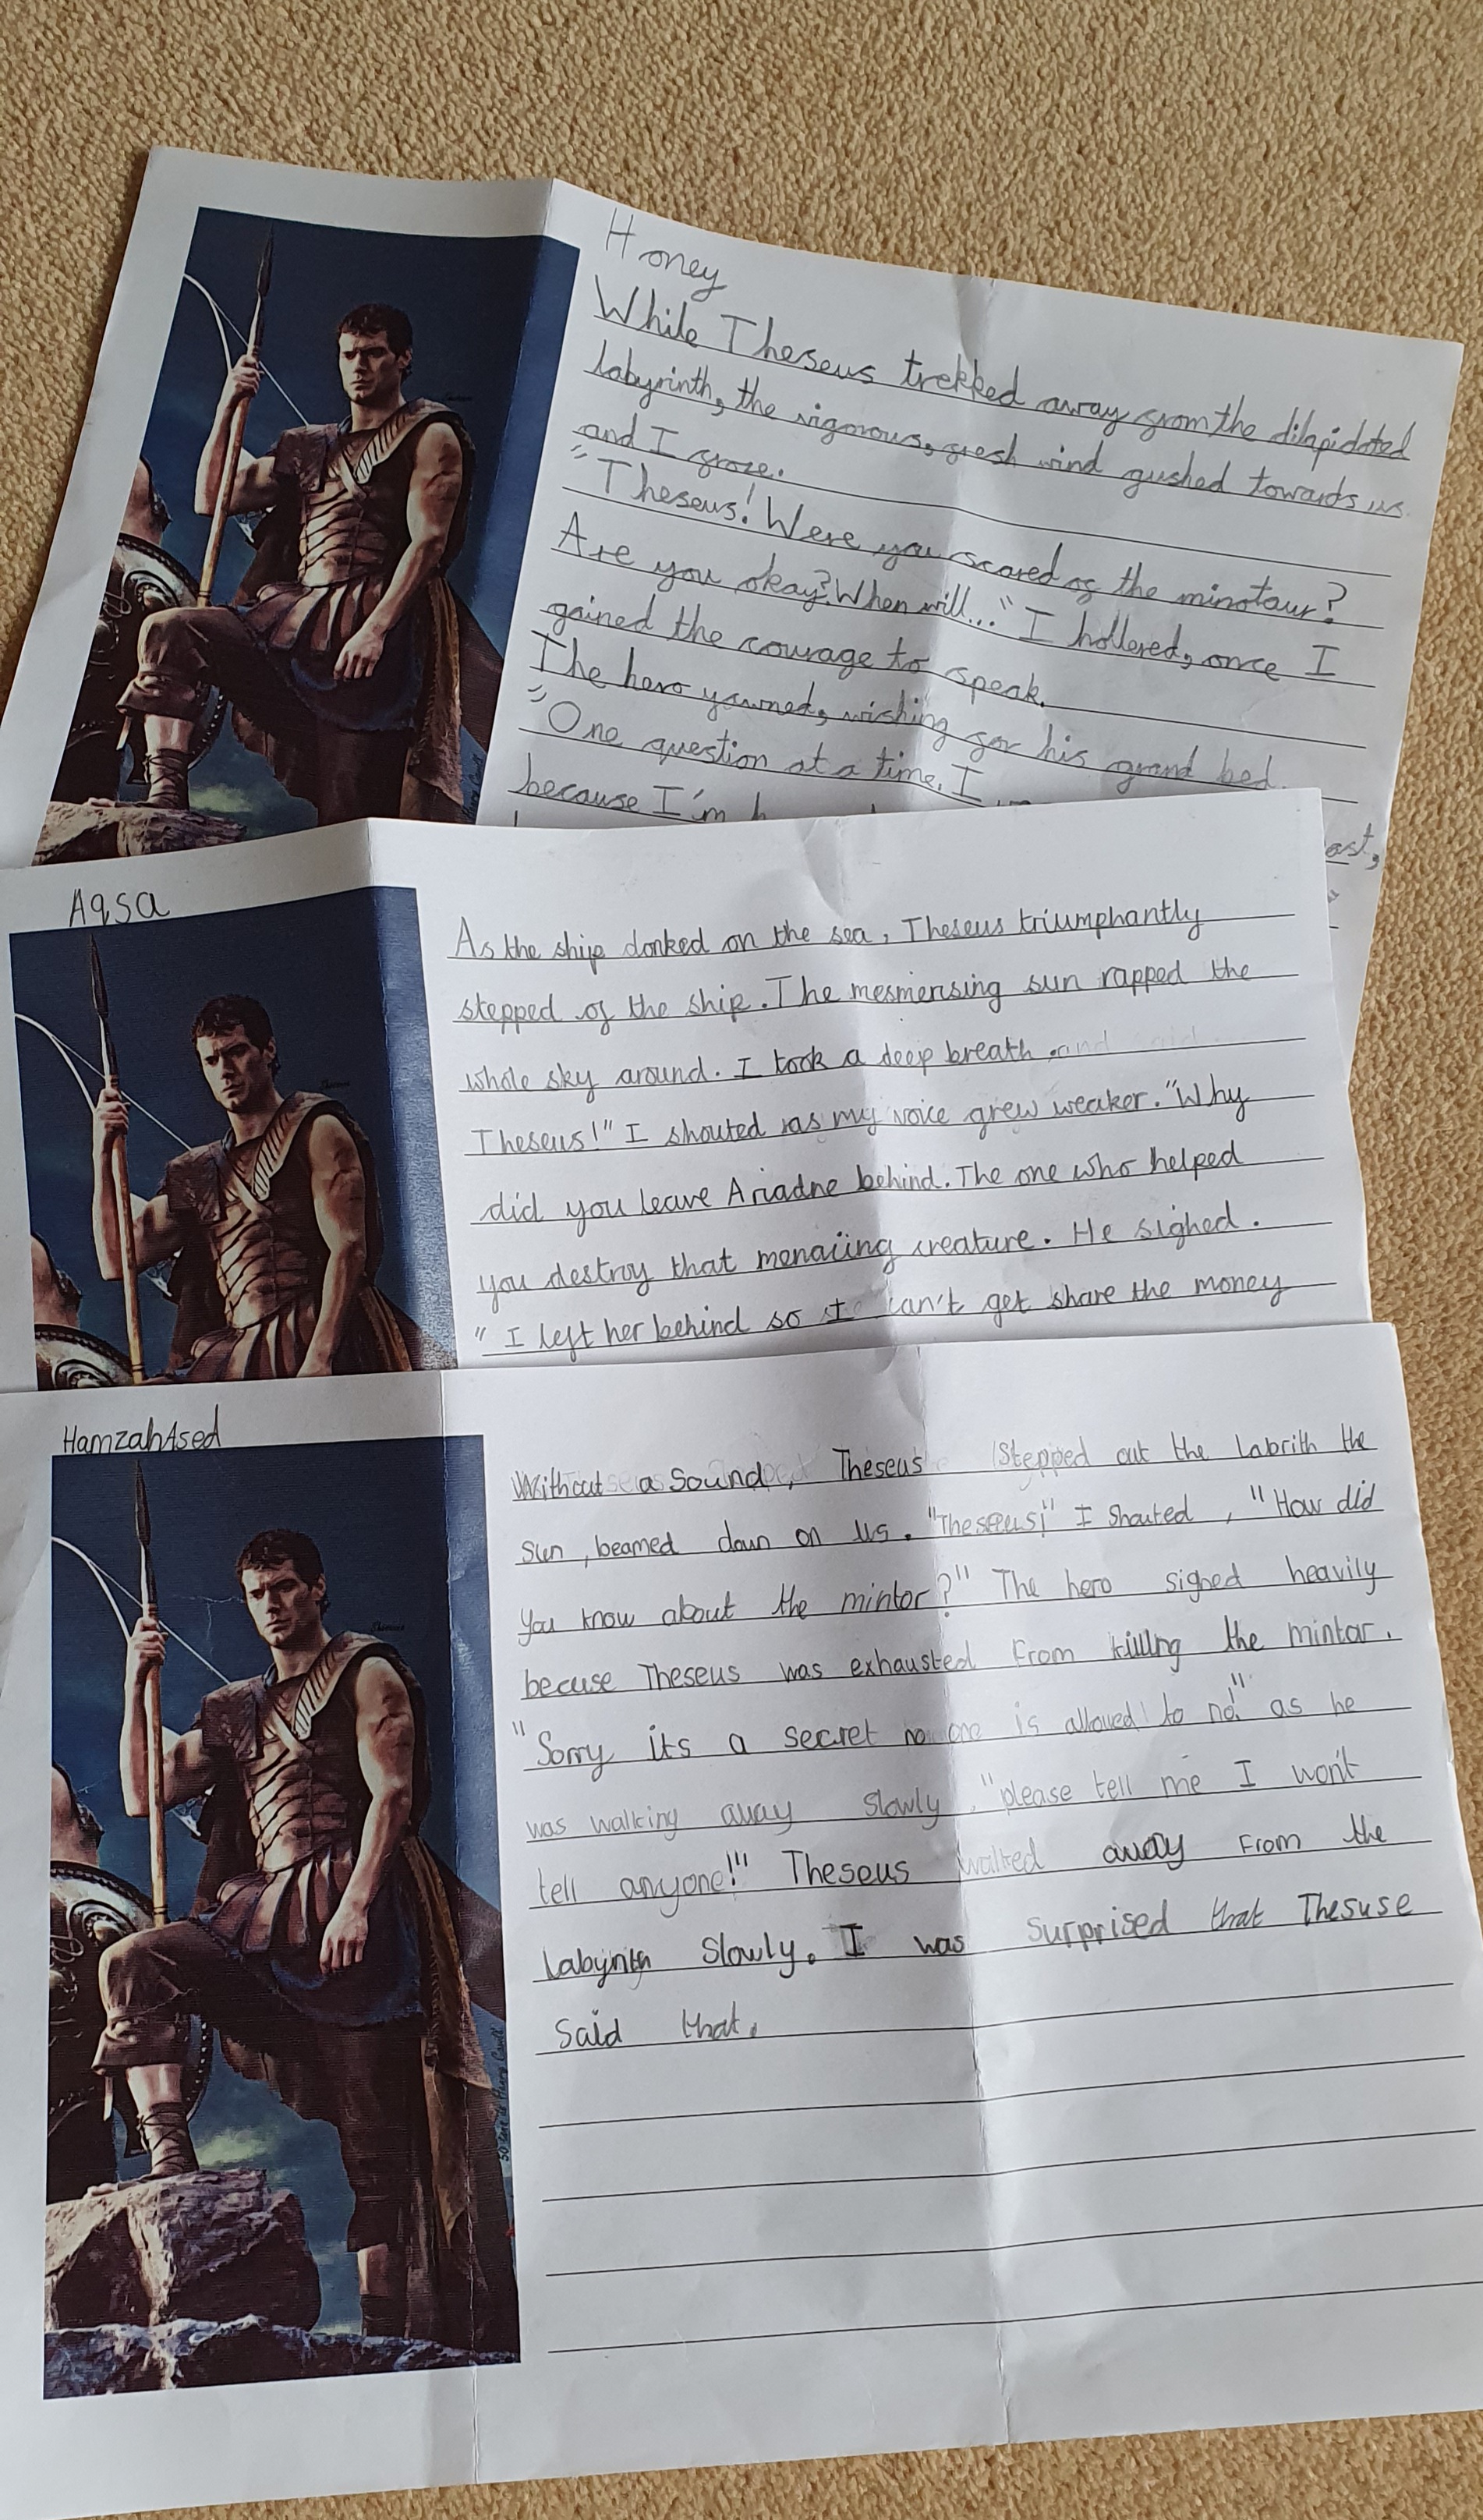 Honey
While Theseus trekked away from the dilapidated
labyrinth, the vigorous, fresh wind gushed towards us
and I froze.
"Theseus! Were you scared of the minotaur?
Are you okay? When will..." I hollered, once I
gained the courage to speak.
The hero yawned, wishing for his grand bed.
"One question at a time. I
because I'm
Aqsa
As the ship donked on the sea, Theseus triumphantly
stepped of the ship. The mesmerising sun rapped the
whole sky around. I took a deep breath.
Theseus!" I shouted as my voice grew weaker. "Why
did you leave Ariadne behind. The one who helped
you destroy that menaiing creature. He sighed.
" I left her behind so I can't get share the money
Hamzah Ased
Without a sound, Theseus Stepped out the Labrith the
sun, beamed down on us. "Theseus!" I shouted, "How did
you know about the mintor?" The hero signed heavily
becuse Theseus was exhausted From killing the mintar.
"Sorry its a secret no one is allowed to no!" as he
was walking away slowly. "please tell me I won't
tell anyone!" Theseus walked away From the
Labyrith Slowly. I was Surprised that Thesuse
said that.